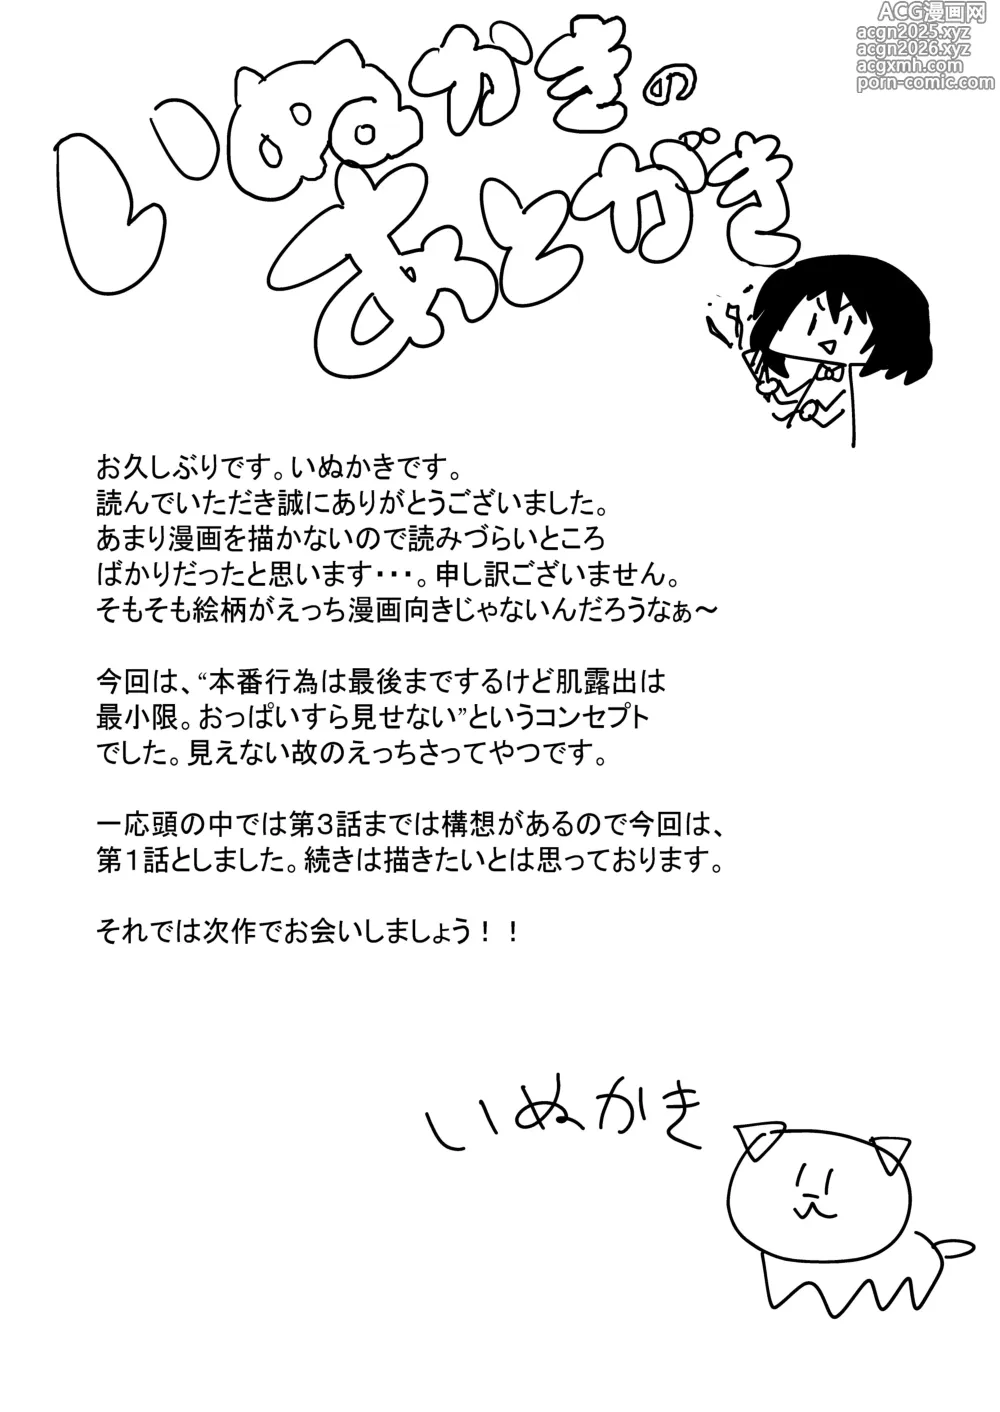 ACG漫画网
acgn2025.xyz
acgn2026.xyz
acgxmh.com
porn-comic.com
いぬかきの
あとがき
お久しぶりです。いぬかきです。
読んでいただき誠にありがとうございました。
あまり漫画を描かないので読みづらいところ
ばかりだったと思います・・・。申し訳ございません。
そもそも絵柄がえっち漫画向きじゃないんだろうなぁ～
今回は、“本番行為は最後までするけど肌露出は
最小限。おっぱいすら見せない”というコンセプト
でした。見えない故のえっちさってやつです。
一応頭の中では第３話までは構想があるので今回は、
第１話としました。続きは描きたいとは思っております。
それでは次作でお会いしましょう！！
いぬかき